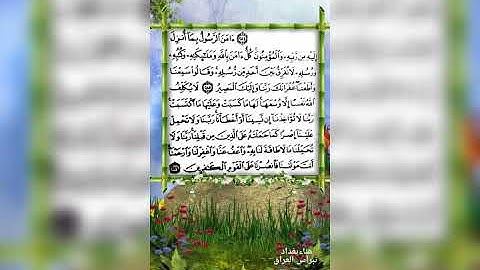 ءَامَنَ ٱلرَّسُولُ بِمَآ أُنزِلَ
إِلَيْهِ مِن رَّبِّهِۦ وَٱلْمُؤْمِنُونَ كُلٌّ ءَامَنَ بِٱللَّهِ وَمَلَٰٓئِكَتِهِۦ وَكُتُبِهِۦ
وَرُسُلِهِۦ لَا نُفَرِّقُ بَيْنَ أَحَدٍ مِّن رُّسُلِهِۦ وَقَالُوا۟ سَمِعْنَا
وَأَطَعْنَا غُفْرَانَكَ رَبَّنَا وَإِلَيْكَ ٱلْمَصِيرُ ٢٨٥ لَا يُكَلِّفُ
ٱللَّهُ نَفْسًا إِلَّا وُسْعَهَا لَهَا مَا كَسَبَتْ وَعَلَيْهَا مَا ٱكْتَسَبَتْ
رَبَّنَا لَا تُؤَاخِذْنَآ إِن نَّسِينَآ أَوْ أَخْطَأْنَا رَبَّنَا وَلَا تَحْمِلْ
عَلَيْنَآ إِصْرًا كَمَا حَمَلْتَهُۥ عَلَى ٱلَّذِينَ مِن قَبْلِنَا رَبَّنَا وَلَا
تُحَمِّلْنَا مَا لَا طَاقَةَ لَنَا بِهِۦ وَٱعْفُ عَنَّا وَٱغْفِرْ لَنَا وَٱرْحَمْنَآ
أَنتَ مَوْلَىٰنَا فَٱنصُرْنَا عَلَى ٱلْقَوْمِ ٱلْكَٰفِرِينَ ٢٨٦
هناء بغداد
نبراس العراق